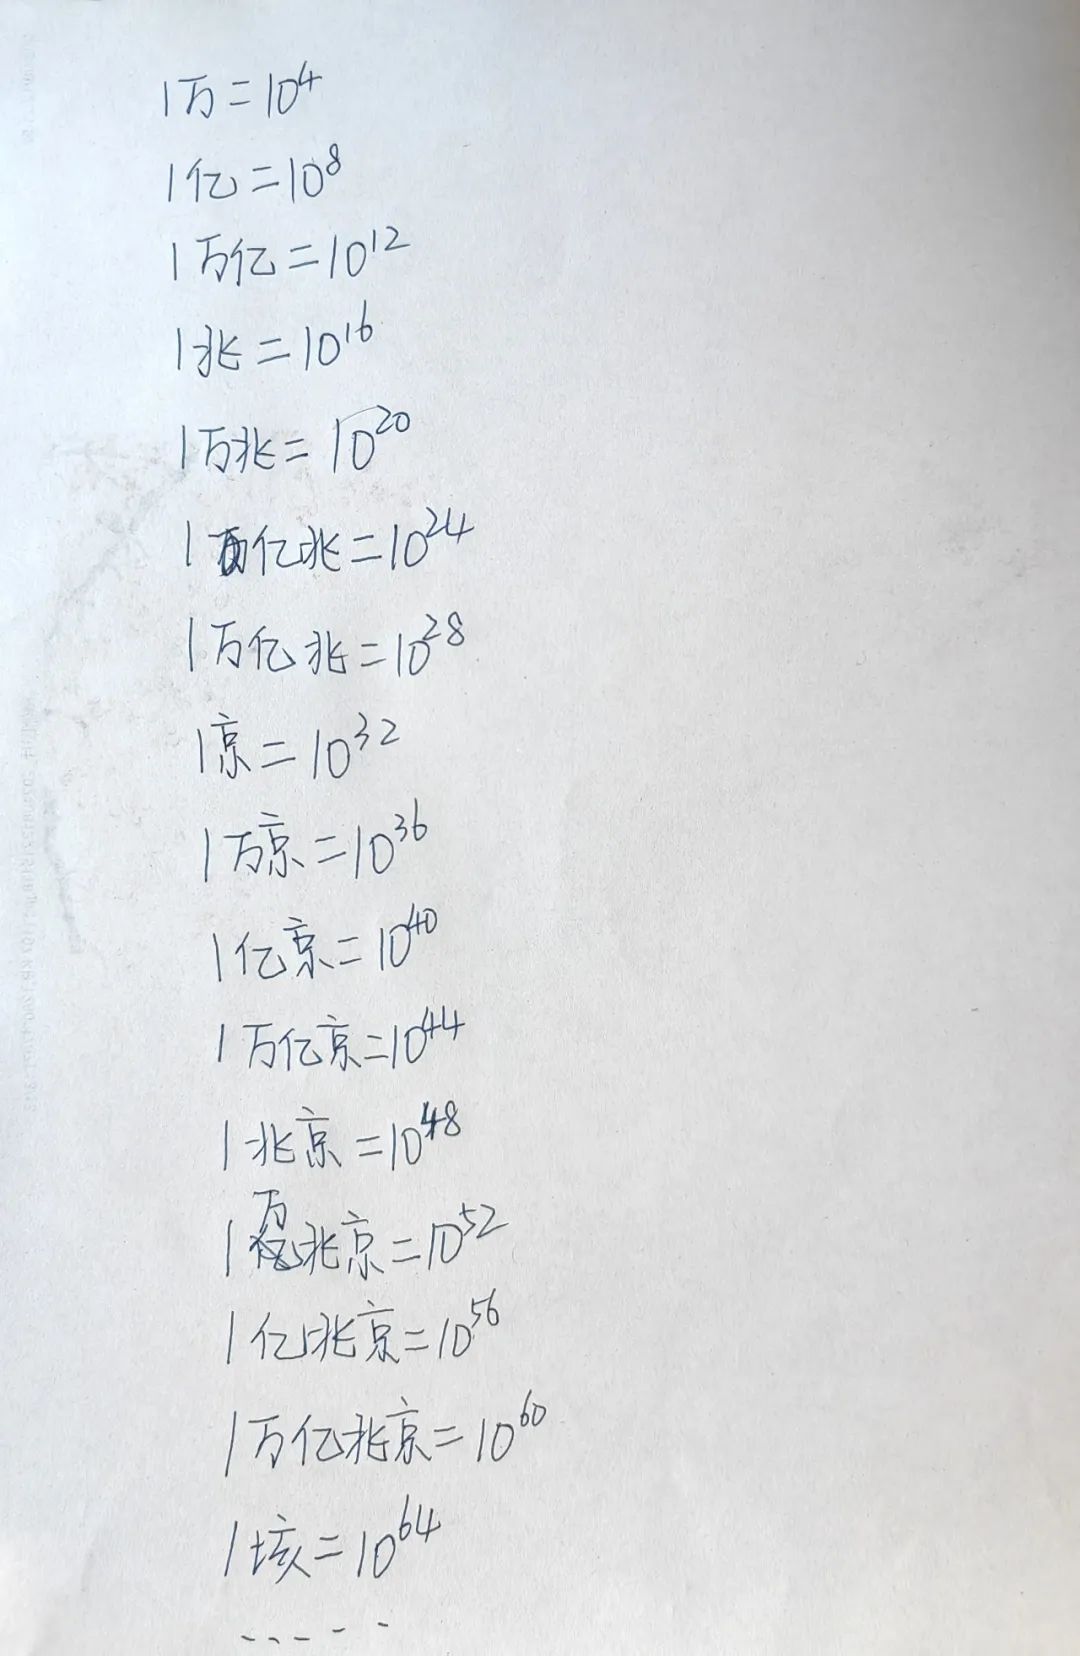 1万=10⁴
1亿=10⁸
1万亿=10¹²
1兆=10¹⁶
1万兆=10²⁰
1亿兆=10²⁴
1万亿兆=10²⁸
1京=10³²
1万京=10³⁶
1亿京=10⁴⁰
1万亿京=10⁴⁴
1兆京=10⁴⁸
1万兆京=10⁵²
1亿兆京=10⁵⁶
1万亿兆京=10⁶⁰
1垓=10⁶⁴
-----